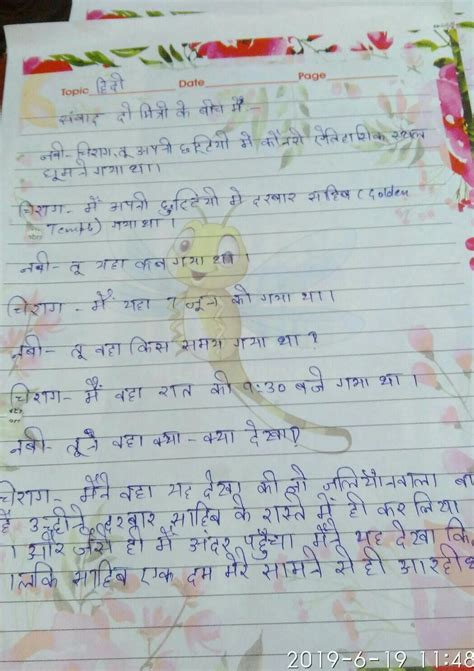 Topic हिंदी Date Page
संवाद दो मित्रों के बीच में:-
नबी- चिराग, तू अपनी छुट्टियों में कौनसे ऐतिहासिक स्थल
घूमने गया था।
चिराग- मैं अपनी छुट्टियों में दरबार साहिब (Golden
Temple) गया था।
नबी- तू यहा कब गया था।
चिराग- मैं यहा 7 जून को गया था।
नबी- तू वहा किस समय गया था?
चिराग- मैं वहा रात को 9:30 बजे गया था।
नबी- तूने वहा क्या-क्या देखा?
चिराग- मैंने वहा यह देखा की जो जलियाँनवाला बा
है उन्होंने दरबार साहिब के रास्ते में ही कर लिया
और जैसे ही मैं अंदर पहुँचा मैंने यह देखा कि
पालकि साहिब एक दम मेरे सामने से ही आ रही थ
2019-6-19 11:48